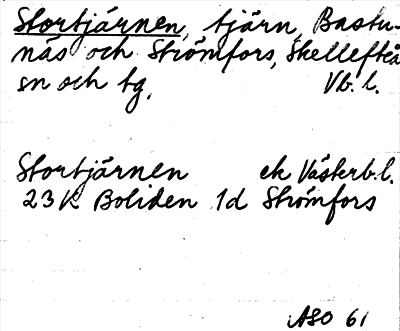 Stortjärnen, tjärn, Bastu-
näs och Strömfors, Skellefteå
sn och tg, Vb. l.
Stortjärnen ek Västerb.l.
23K Boliden 1d Strömfors
ASO 61